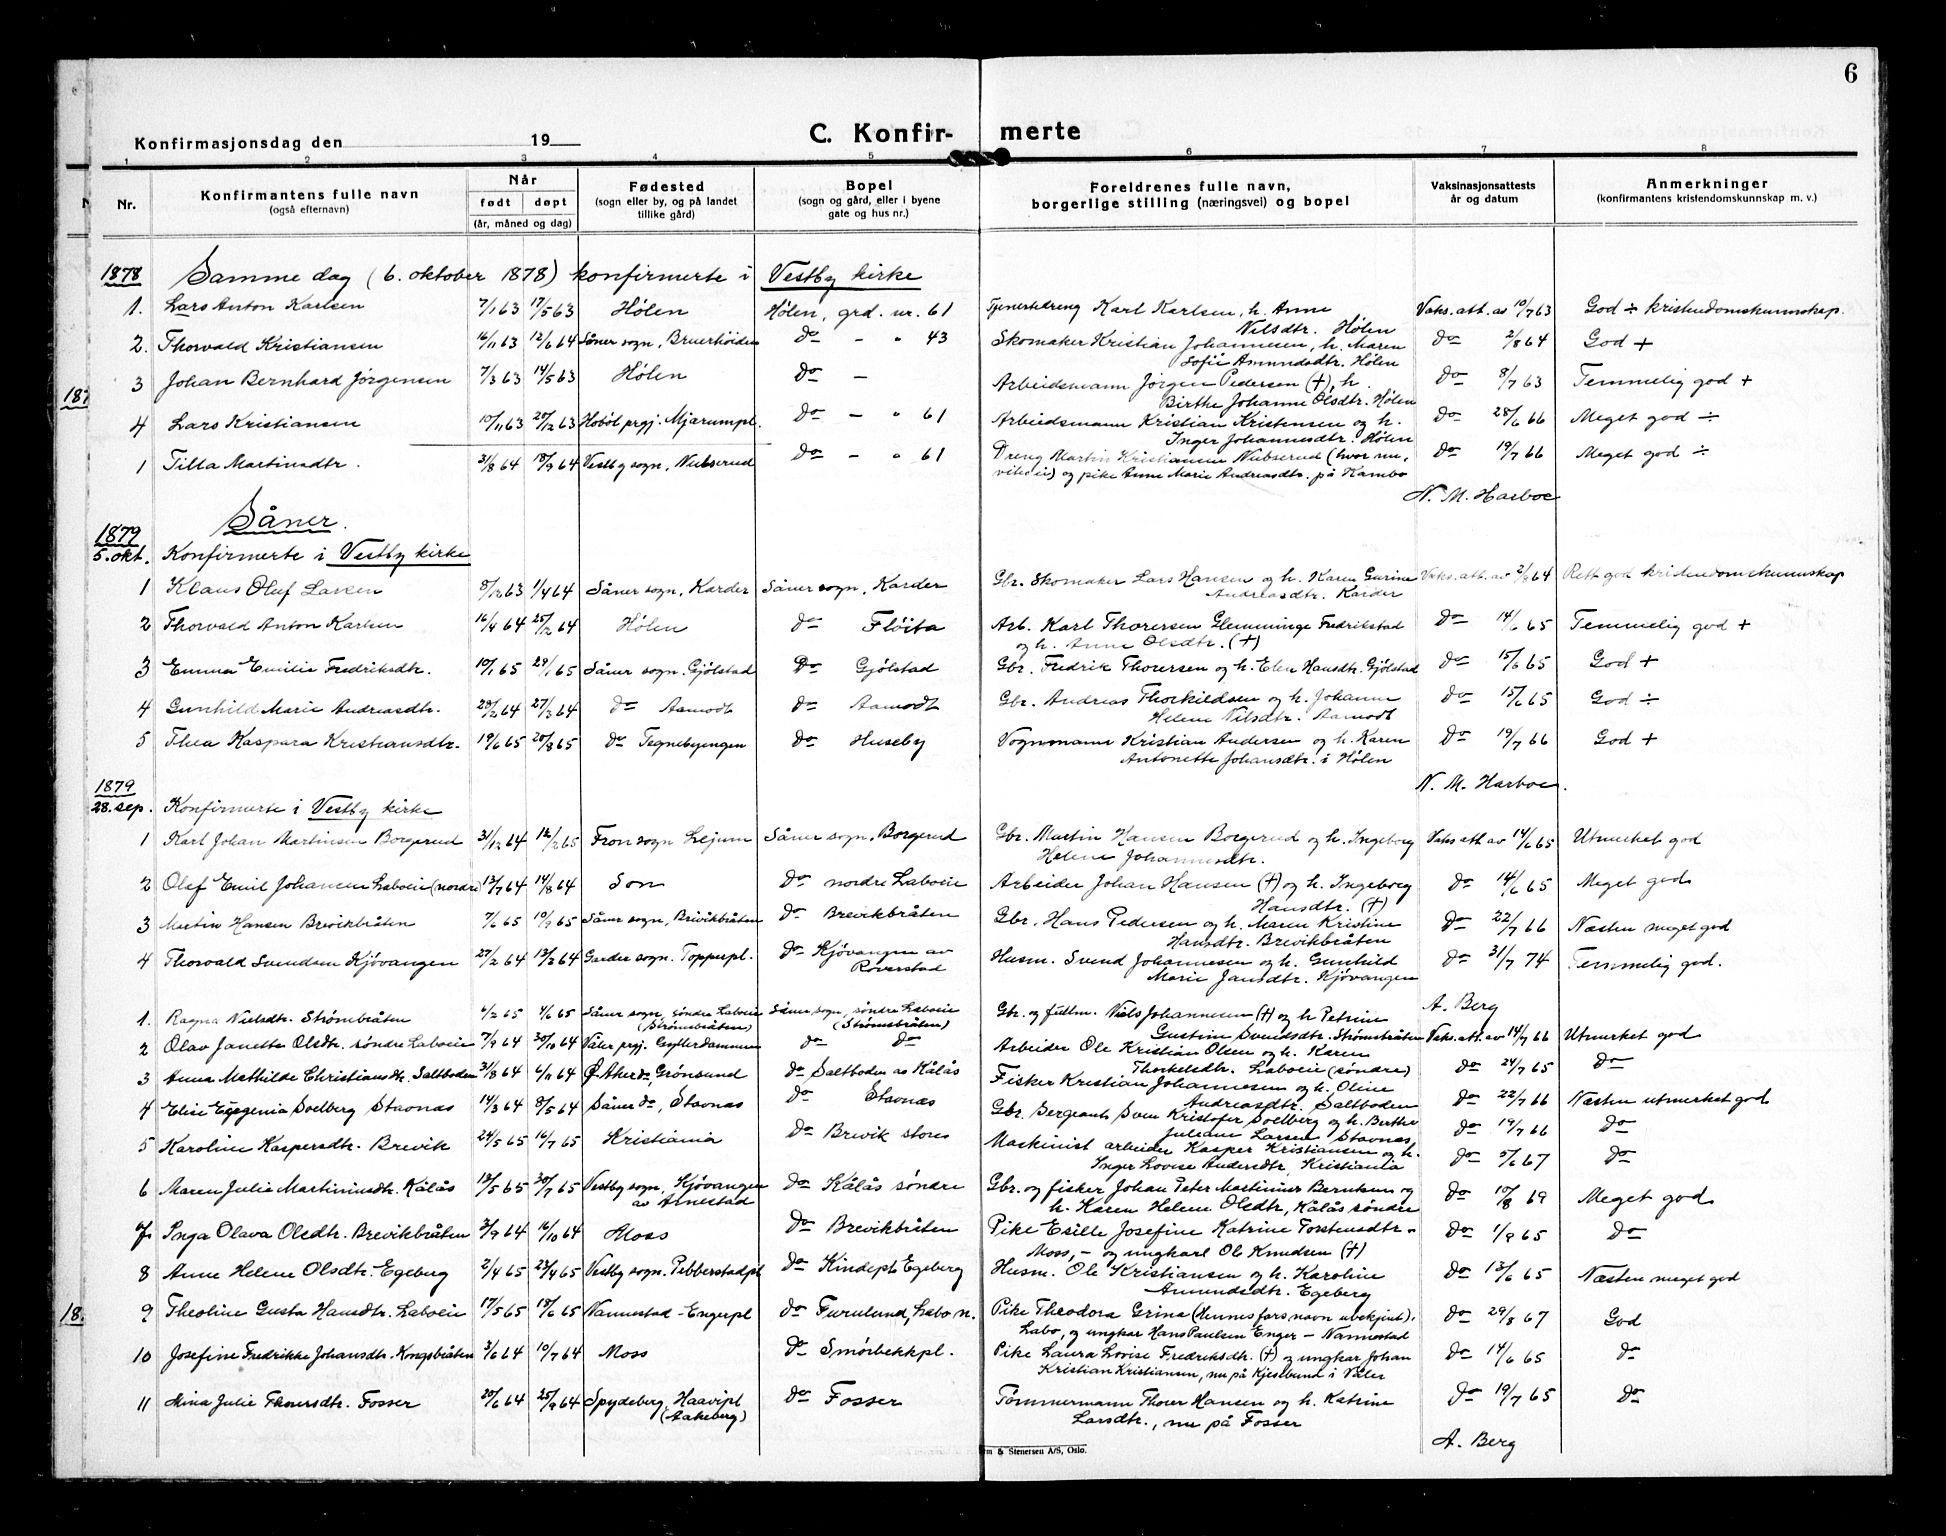 6
Konfirmasjonsdag den 19
C. Konfir- merte
1 2 3 4 5 6 7 8
Nr.
Konfirmantens fulle navn
(også efternavn)
Når
født døpt
(år, måned og dag)
Fødested
(sogn eller by, og på landet
tillike gård)
Bopel
(sogn og gård, eller i byene
gate og hus nr.)
Foreldrenes fulle navn,
borgerlige stilling (næringsvei) og bopel
Vaksinasjonsattests
år og datum
Anmerkninger
(konfirmantens kristendomskunnskap m. v.)
1878 Samme dag (6. oktober 1878) konfirmerte i Vestby kirke
1. Lars Anton Karlsen 7/1 63 17/5 63 Hølen Hølen, grd. nr. 61 Tjenertdreng Karl Karlsen, h. Anne Vaks. att. av 10/7 63 God ÷ kristendomskunnskap.
Nilsdtr. Hølen
2. Thorvald Kristiansen 16/11 63 12/6 64 Såner sogn, Do - " 43 Skomaker Kristian Johannesen, h. Maren Do 2/8 64 God +
Sofie Amundsdtr. Hølen
3 Johan Bernhard Jørgensen 7/3 63 14/5 63 Hølen Do - Arbeidsmann Jørgen Pedersen (+), h. Do 8/7 63 Temmelig god +
Birthe Johanne Olsdtr. Hølen
4 Lars Kristiansen 10/11 63 20/12 63 Hobøl prgj. Mjarumpl. Do - " 61 Arbeidsmann Kristian Kristensen og h. Do 28/6 66 Meget god ÷
Inger Johannesdtr. Hølen
1 Tilla Martinsdtr. 31/8 64 18/9 64 Vestby sogn, Nubserud Do - " 61 Dreng Martin Kristiansen Nubserud (hvor nu, Do 19/7 66 Meget god ÷
vites ei) og pike Anne Marie Andreasdtr. på Kambo
N. M. Harboe
Såner.
1879
5. okt. Konfirmerte i Vestby kirke
1 Klaus Oluf Larsen 8/12 63 1/4 64 Såner sogn, Karder Såner sogn, Karder Gbr. Skomaker Lars Hansen og h. Karen Gurine Vaks. att. av 2/8 64 Rett god kristendomskunnskap
Andreasdtr. Karder
2 Thorvald Anton Karlsen 16/4 64 25/2 64 Hølen Do Fløita Arb. Karl Thorersen Glemminge Fredrikstad Do 14/6 65 Temmelig god +
og h. Anne Olsdtr. (+)
3 Emma Emilie Fredriksdtr. 10/1 65 29/1 65 Såner sogn. Gjølstad Do Gjølstad Gbr. Fredrik Thorersen og h. Elen Hansdtr. Gjølstad Do 15/6 65 God +
4 Gunhild Marie Andreasdtr. 28/2 64 27/3 64 Do Aamodt Do Aamodt Gbr. Andreas Thorkildsen og h. Johanne Do 15/6 65 God ÷
Helene Nilsdtr. Aamodt
5 Thea Kaspara Kristiansdtr. 19/6 65 20/8 65 Do Tegnebyengen Do Huseby Vognmann Kristian Andersen og h. Karen Do 19/7 66 God +
Antonette Johansdtr. i Hølen
N. M. Harboe.
1879
28. sep. Konfirmerte i Vestby kirke
1 Karl Johan Martinsen Borgerud 31/12 64 12/2 65 Fron sogn Lejum Såner sogn. Borgerud Gbr. Martin Hansen Borgerud og h. Ingeborg Vaks att. av 14/6 65 Utmerket god
Helene Johannesdtr.
2 Olef Emil Johansen Laboeie (nordre) 13/7 64 14/8 64 Son Do nordre Laboeie Arbeider Johan Hansen (+) og h. Ingeborg Do 14/6 65 Meget god
Hansdtr. (+)
3 Martin Hansen Brevikbråten 7/6 65 10/9 65 Såner sogn, Brevikbråten Do Brevikbråten Gbr. Hans Pedersen og h. Maren Kristine Do 22/7 66 Næsten meget god
Hansdtr. Brevikbråten
4 Thorvald Svendsen Kjøvangen 27/2 64 13/2 64 Garder sogn. Topperpl. Do Kjøvangen av Husm. Svend Johannesen og h. Gunhild Do 31/7 74 Temmelig god.
Røverstad Marie Jansdtr. Kjøvangen
A. Berg
1. Ragna Nielsdtr. Strømbråten 4/2 65 4/6 65 Såner sogn, søndre Laboeie Såner sogn, søndre Laboeie Gbr. og fullm. Niels Johannesen (+) og h Petrine
(Strømsbråten) (Strømsbråten) Gustine Svendsdtr. Strømsbråten Vaks. att. av 14/7 66 Utmerket god
2 Olav Janette Olsdtr. søndre Laboeie 7/9 64 30/10 64 Våler prgj. Gylterdammen do do Arbeider Ole Kristian Olsen og h. Karen
Thorkelsdtr. Laboeie (søndre) Do 24/7 65 Do
3 Anna Mathilde Christiansdtr. Saltboden 31/8 64 6/11 64 Ø. Aker Do, Grønsund Do Saltboden av Kålås Fisker Kristian Johannesen og h. Oline
Andreasdtr. Saltboden Do 22/7 66 Næsten utmerket god
4 Elise Eggenia Soelberg Stavnæs 14/3 64 8/5 64 Såner Do, Stavnæs Do Stavnæs Gbr. Sergeant Sven Kristofer Soelberg og h. Berthe
Juliane Larsen Stavnæs, Do 19/7 66 Do
5 Karoline Kaspersdtr. Brevik 24/5 65 16/7 65 Kristiania Do Brevik store Maskinist arbeider Kasper Kristiansen og h.
Inger Lovise Andersdtr. Kristiania Do 5/6 67 Do
6 Maren Julie Martiniusdtr. Kålås 18/5 65 30/7 65 Vestby sogn, Kjøvangen Do Kålås søndre Gbr. og fisker Johan Peter Martinius Berntsen og Do 10/8 69 Meget god
av Arnestad h. Karen Helene Olsdtr, Kålås søndre
7. Inga Olava Olsdtr. Brevikbråten 3/9 64 16/10 64 Moss Do Brevikbråten Pike Esille Josefine Katrine Torstensdtr - Do 1/9 65 Do
Moss, - og ungkarl Ole Knudsen (+)
8 Anne Helene Olsdtr. Egeberg 2/4 65 23/4 65 Vestby sogn. Pebberstadpl Do Kindepl. Egeberg Husm. Ole Kristiansen og h. Karoline Do 13/6 65 Næsten meget god
Amundsdtr. Egeberg
9 Theoline Gusta Hansdtr. Laboeie 17/5 65 18/6 65 Nannestad - Engerpl Do Furulund, Labo n. Pike Theodora Grina (Hennes fars navn ubekjent). Do 29/8 67 God
Labo, og ungkar Hans Paulsen Enger - Nannestad
10 Josefine Fredrikke Johansdtr. Kongsbråten 3/6 64 10/7 64 Moss Do Smörbekkpl. Pike Laura Lovise Fredriksdtr. (+) og ungkar Johan Do 14/6 65 Do
Kristian Kristiansen, nu på Kjeslund i Våler
11 Mina Julie Thorersdtr. Fosser 20/6 64 25/9 64 Spydeberg, Haavipl Do Fosser Tømmermann Thorer Hansen og h. Katrine Do 19/7 65 Do
(Aakeberg) Larsdtr., nu på Fosser
A. Berg
m & Stenersen A/S, Oslo.